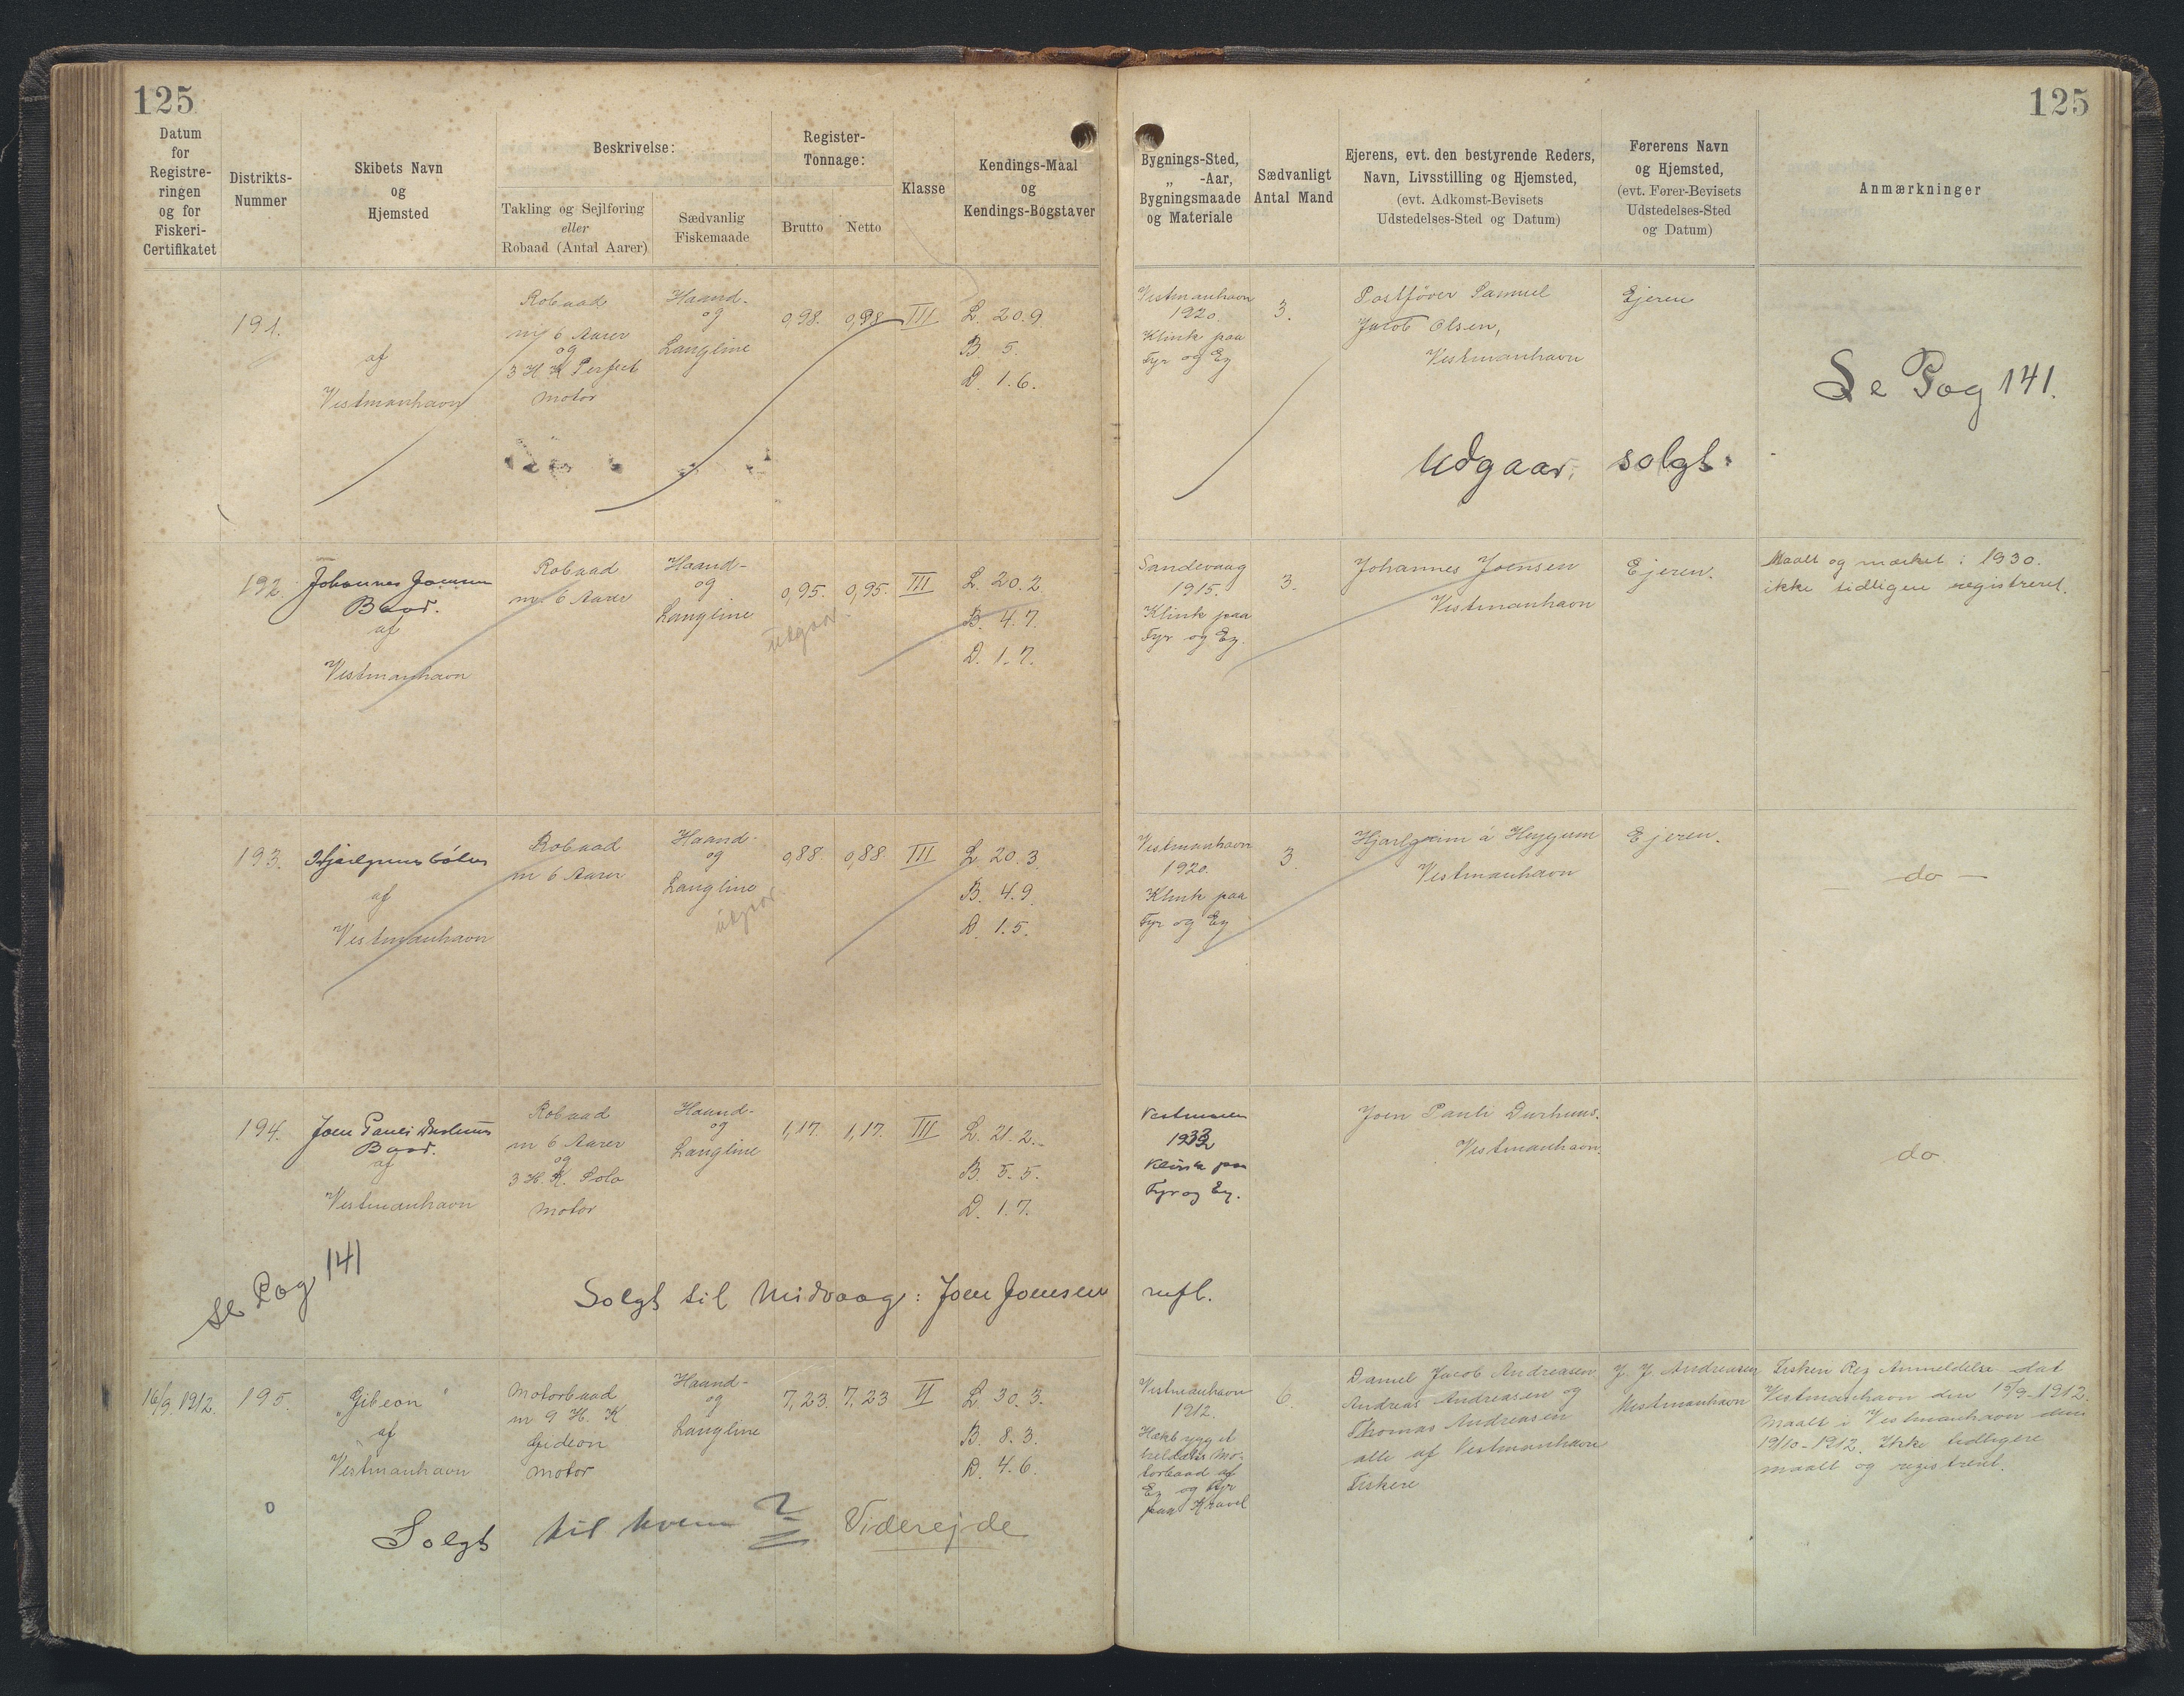 125
125
Datum
for
Registre-
ringen
og for
Fiskeri-
Certifikatet
Distrikts-
Nummer
Skibets Navn
og
Hjemsted
Beskrivelse:
Takling og Sejlføring
eller
Robaad (Antal Aarer)
Sædvanlig
Fiskemaade
Register-
Tonnage:
Brutto
Netto
Klasse
Kendings-Maal
og
Kendings-Bogstaver
Bygnings-Sted,
„ -Aar,
Bygningsmaade
og Materiale
Sædvanligt
Antal Mand
Ejerens, evt. den bestyrende Reders,
Navn, Livsstilling og Hjemsted,
(evt. Adkomst-Bevisets
Udstedelses-Sted og Datum)
Førerens Navn
og Hjemsted,
(evt. Fører-Bevisets
Udstedelses-Sted
og Datum)
Anmærkninger
191.
af
Vestmanhavn
Robaad
m/ 6 Aarer
og
3 H K Perfect
motor
Haand-
og
Langline
0,98. 0,98 III
L. 20.9
B. 5.
D. 1.6.
Vestmanhavn
1920.
Klink paa
Fyr og Eg
3.
Postfører Samuel
Jacob Olsen,
Vestmanhavn
Ejeren
Se Pag 141.
Udgaar, solgt.
192.
Johannes Joensen
Baad.
af
Vestmanhavn
Robaad
m. 6 Aarer
Haand-
og
Langline
0,95. 0,95. III
Udgaar.
L. 20.2
B. 4.7.
D. 1.7.
Sandevaag
1915.
Klink paa
Fyr og Eg.
3.
Johannes Joensen
Vestmanhavn
Ejeren.
Maalt og mærket i 1930.
ikke tidligere registreret.
193.
af
Vestmanhavn
Robaad
m 6 Aarer
Haand-
og
Langline
udgaar
0,88. 0,88. III
L. 20.3
B. 4.9.
D. 1.5.
Vestmanhavn
1920.
Klink paa
Fyr og Eg
3
Hjarlgrim á Heygum
Vestmanhavn
Ejeren.
— do —
194.
Joen Pauli Durhuus
Baad.
af
Vestmanhavn
Robaad
m 6 Aarer
og
3 H. K. Solo
motor
Haand-
og
Langline
1,17. 1,17. III
L. 21.2.
B. 5.5.
D. 1.7.
1933
Klink paa
Fyr og Eg.
Joen Pauli Durhuus.
Vestmanhavn.
do
se Pag 141
Solgt til Midvaag: Joen Joensen
16/9. 1912.
195.
„Gibeon"
af
Vestmanhavn
Motorbaad
m 9 H. K
Gideon
motor
Haand-
og
Langline
7,23. 7,23 II
L. 30.3.
B. 8.3.
D. 4.6.
Vestmanhavn
1912.
Hækbygget
heldæks Mo-
torbaad af
Eg og Fyr
paa Kravel
6.
Daniel Jacob Andreasen
Andreas Andreasen og
Thomas Andreasen
alle af Vestmanhavn
Fiskere
J. J. Andreasen
Vestmanhavn
Fiskeri Reg Anmeldelse dat
Vestmanhavn den 15/9-1912.
Maalt i Vestmanhavn den
19/10-1912. Ikke tidligere
maalt og registreret.
o
Solgt til hvem ? Viderejde